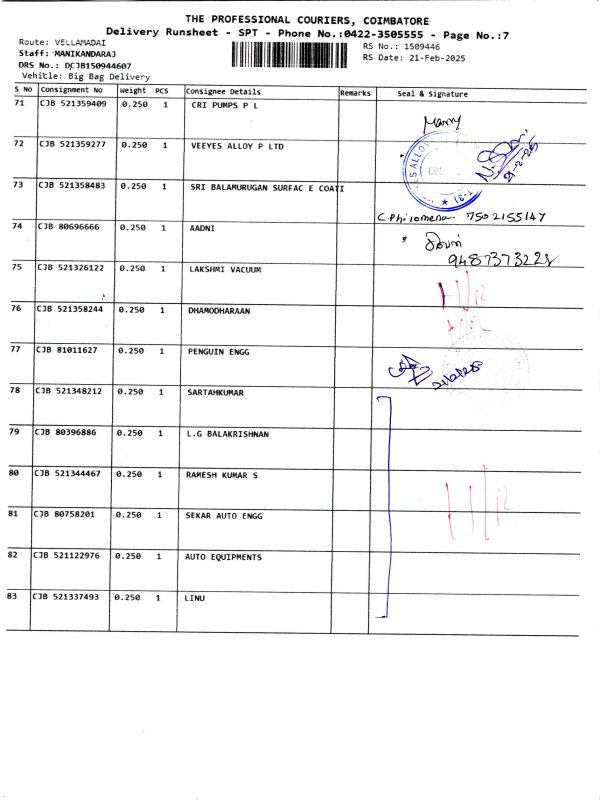 THE PROFESSIONAL COURIERS, COIMBATORE
Delivery Runsheet - SPT - Phone No.:0422-3505555 - Page No.:7
Route: VELLAMADAI
RS No.: 1509446
Staff: MANIKANDARAJ
RS Date: 21-Feb-2025
DRS No.: DCJB150944607
Vehitle: Big Bag Delivery
S NO Consignment No Weight PCS Consignee Details Remarks Seal & Signature
71 CJB 521359409 0.250 1 CRI PUMPS P L
72 CJB 521359277 0.250 1 VEEYES ALLOY P LTD
73 CJB 521358483 0.250 1 SRI BALAMURUGAN SURFAC E COATI
C.Philomena. 7502155147
74 CJB 80696666 0.250 1 AADNI
9487373228
75 CJB 521326122 0.250 1 LAKSHMI VACUUM
76 CJB 521358244 0.250 1 DHAMODHARAAN
77 CJB 81011627 0.250 1 PENGUIN ENGG
78 CJB 521348212 0.250 1 SARTAHKUMAR
79 CJB 80396886 0.250 1 L.G BALAKRISHNAN
80 CJB 521344467 0.250 1 RAMESH KUMAR S
81 CJB 80758201 0.250 1 SEKAR AUTO ENGG
82 CJB 521122976 0.250 1 AUTO EQUIPMENTS
83 CJB 521337493 0.250 1 LINU